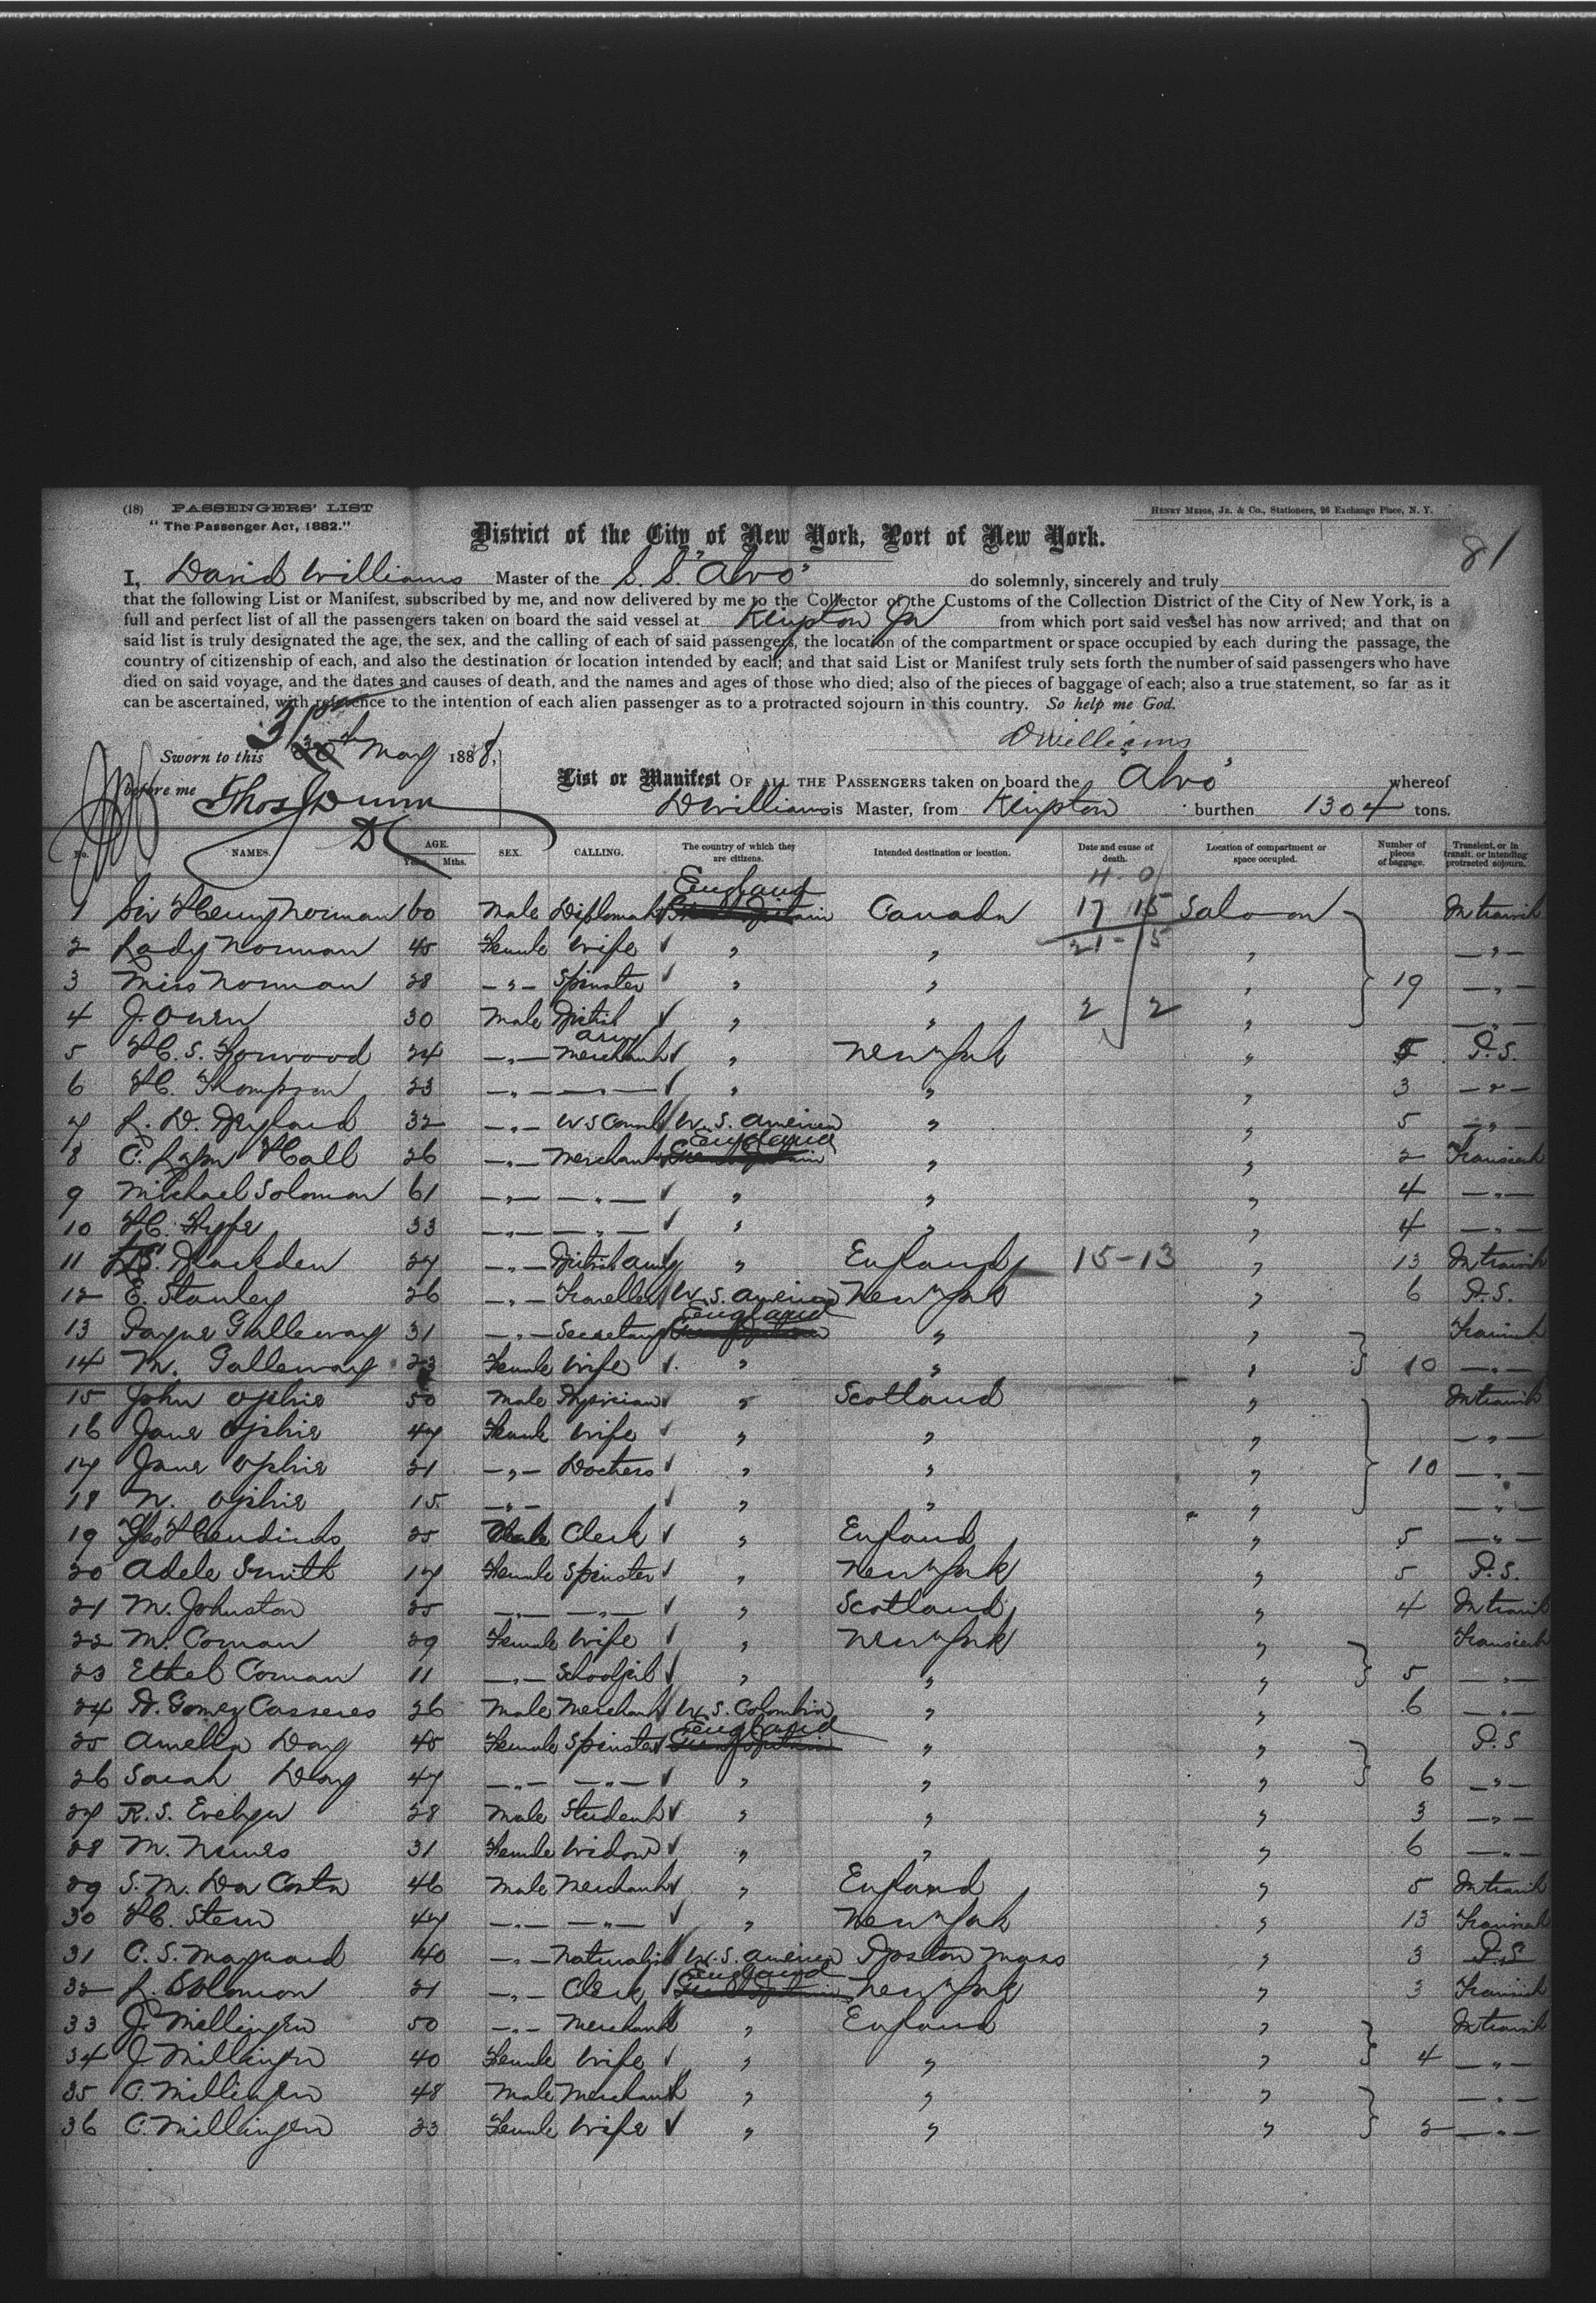 (18) PASSENGERS' LIST
"The Passenger Act, 1882."
HENRY MEIGS, JR. & CO., Stationers, 26 Exchange Place, N. Y.
81
District of the City of New York, Port of New York.
I, David Williams Master of the S. S. "Alvo" do solemnly, sincerely and truly
that the following List or Manifest, subscribed by me, and now delivered by me to the Collector of the Customs of the Collection District of the City of New York, is a
full and perfect list of all the passengers taken on board the said vessel at Kingston Ja from which port said vessel has now arrived; and that on
said list is truly designated the age, the sex, and the calling of each of said passengers, the location of the compartment or space occupied by each during the passage, the
country of citizenship of each, and also the destination or location intended by each; and that said List or Manifest truly sets forth the number of said passengers who have
died on said voyage, and the dates and causes of death, and the names and ages of those who died; also of the pieces of baggage of each; also a true statement, so far as it
can be ascertained, with reference to the intention of each alien passenger as to a protracted sojourn in this country. So help me God.
DWilliams
Sworn to this 31st May 1888,
before me Thos Dunn
List or Manifest OF ALL THE PASSENGERS taken on board the Alvo whereof
DWilliams is Master, from Kingston burthen 1304 tons.
No. NAMES. AGE. Years. Mths. SEX. CALLING. The country of which they are citizens. Intended destination or location. Date and cause of death. Location of compartment or space occupied. Number of pieces of baggage. Transient, or in transit, or intending protracted sojourn.
1 Sir Henry Norman 60 Male Diplomat England Canada 17 15 Saloon In transit
2 Lady Norman 45 Female Wife " " 21-15 " "
3 Miss Norman 28 " Spinster " " " 19 "
4 J. Owen 30 Male British Army " " 2 2 " "
5 H. S. Forwood 24 " Merchant " New York " 5 P.S.
6 H. Thompson 23 " " " " " 3 "
7 32 " U S Consul U. S. America " " 5 "
8 C. Hall 26 " Merchant England " " 2 Transient
9 Michael Soloman 61 " " " " " 4 "
10 33 " " " " " 4 "
11 27 " British Army " England 15-13 " 13 In transit
12 E. Stanley 26 " Traveller U. S. America New York " 6 P.S.
13 Payne Galleway 31 " Secretary England " " Transient
14 M. Galleway 23 Female Wife " " " 10 "
15 John Ophie 50 Male Physician " Scotland " In transit
16 Jane Ophie 47 Female Wife " " " "
17 Jane Ophie 21 " Doctors " " " 10 "
18 N. Ophie 15 " " " " "
19 Hendricks 25 Male Clerk " England " 5 "
20 Adele Smith 17 Female Spinster " New York " 5 P.S.
21 M. Johnston 25 " " " Scotland " 4 In transit
22 M. Coman 29 Female Wife " New York " Transient
23 Ethel Coman 11 " Schoolgirl " " " 5 "
24 D. Gomez Casseres 26 Male Merchant U. S. Colombia " " 6 "
25 Amelia Day 45 Female Spinster England " " P.S
26 Sarah Day 47 " " " " " 6 "
27 R. S. Evelyn 28 Male Student " " " 3 "
28 M. Nunes 31 Female Widow " " " 6 "
29 S. M. Da Costa 46 Male Merchant " England " 5 In transit
30 H. Stern 47 " " " New York " 13 Transient
31 C. S. Maynard 40 " Naturalist U. S. America Boston Mass " 3 P.S
32 L. Solomon 21 " Clerk England New York " 3 Transient
33 J. Millingen 50 " Merchant " England " In transit
34 J. Millingen 40 Female Wife " " " 4 "
35 C. Millingen 48 Male Merchant " " " "
36 C. Millingen 23 Female Wife " " " 2 "